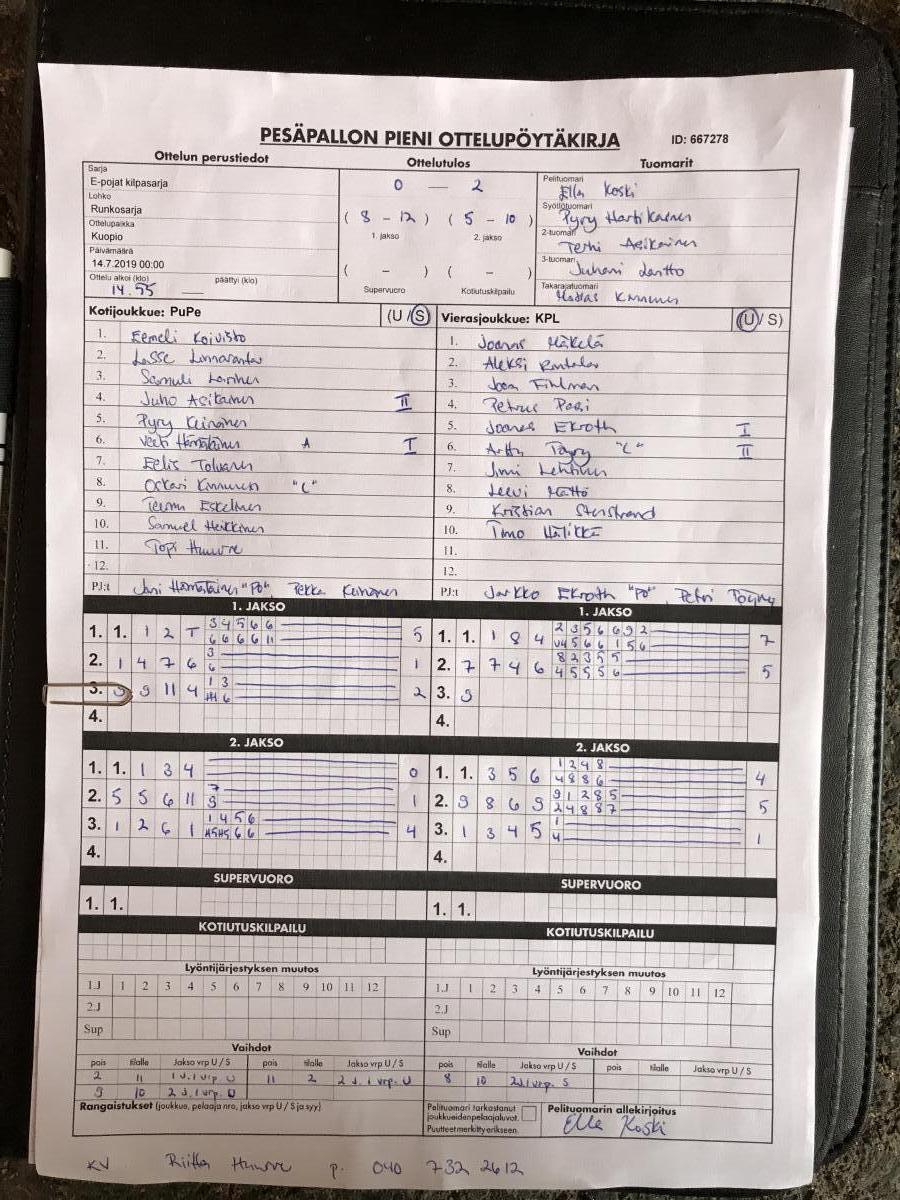 PESÄPALLON PIENI OTTELUPÖYTÄKIRJA
ID: 667278
Ottelun perustiedot
Sarja
E-pojat kilpasarja
Lohko
Runkosarja
Ottelupaikka
Kuopio
Päivämäärä
14.7.2019 00:00
Ottelu alkoi (klo) päättyi (klo)
14.55
Ottelutulos
0 — 2
( 8 - 12 ) ( 5 - 10 )
1. jakso 2. jakso
( - ) ( - )
Supervuoro Kotiutuskilpailu
Tuomarit
Pelituomari
Ella Koski
Syöttötuomari
Pyry Hartikainen
2-tuomari
Terhi Asikainen
3-tuomari
Juhani Lantto
Takarajatuomari
Kinnunen
Kotijoukkue: PuPe (U / S)
1. Eemeli Koivisto
2. Lasse Linnaranta
3. Samuli Laninen
4. Juho Asikainen II
5. Pyry Keinänen
6. Veeti Hämäläinen A I
7. Eelis Tolvanen
8. Oskari Kinnunen "C"
9. Teemu Eskelinen
10. Samuel Heikkinen
11. Topi Huuvre
12.
PJ:t Jani Hämäläinen "PO", Pekka Keinänen
Vierasjoukkue: KPL (U / S)
1. Joonas Mäkelä
2. Aleksi Rantala
3. Joona Fihlman
4. Petrus Pasi
5. Joonas Ekroth I
6. Arttu Töyry "C" II
7. Jimi Lehtinen
8. Leevi Mättö
9. Kristian Stenstrand
10. Timo Hälikkä
11.
12.
PJ:t Jarkko Ekroth "PO", Petri Töyry
1. JAKSO
1. 1. 1 2 T 3 4 5 6 6
6 6 6 6 11 5
2. 1 4 7 6 3
6 1
3. 9 9 11 4 1 3
6 2
4.
1. JAKSO
1. 1. 1 8 4 2 3 5 6 6 9 2
4 5 6 6 1 5 6 7
2. 7 7 4 6 8 2 3 5 5
4 5 5 5 6 5
3. 9
4.
2. JAKSO
1. 1. 1 3 4 0
2. 5 5 6 11 7
9 1
3. 1 2 6 1 1 4 5 6
6 6 4
4.
2. JAKSO
1. 1. 3 5 6 1 2 4 8
4 8 8 6 4
2. 9 8 6 9 9 1 2 8 5
2 4 8 8 7 5
3. 1 3 4 5 1
4 1
4.
SUPERVUORO
1. 1.
SUPERVUORO
1. 1.
KOTIUTUSKILPAILU
KOTIUTUSKILPAILU
Lyöntijärjestyksen muutos
1.J 1 2 3 4 5 6 7 8 9 10 11 12
2.J
Sup
Lyöntijärjestyksen muutos
1.J 1 2 3 4 5 6 7 8 9 10 11 12
2.J
Sup
Vaihdot
pois tilalle Jakso vrp U / S pois tilalle Jakso vrp U / S
2 11 1 J. 1 vrp. U 11 2 2 J. 1 vrp. U
9 10 2 J. 1 vrp. U
Vaihdot
pois tilalle Jakso vrp U / S pois tilalle Jakso vrp U / S
8 10 2J.1 vrp. S
Rangaistukset (joukkue, pelaaja nro, jakso vrp U / S ja syy)
Pelituomari tarkastanut
joukkueidenpelaajaluvat.
Puutteet merkitty erikseen.
Pelituomarin allekirjoitus
Ella Koski
KV Riitta Huuvre p. 040 732 2612